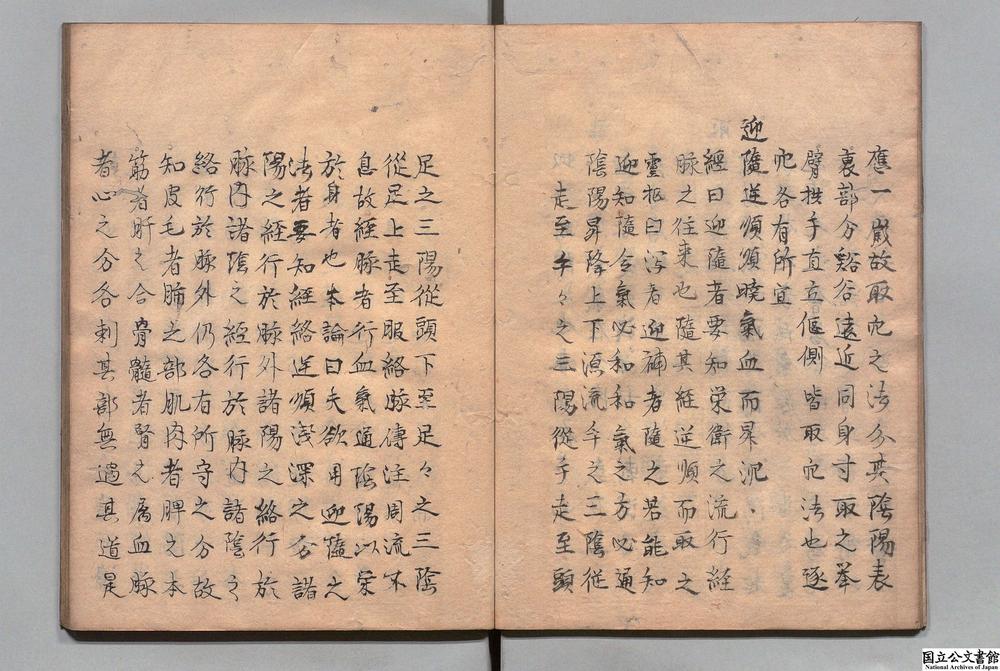 應一嵗故取穴之法分其陰陽表
裏部分谿谷遠近同身寸取之举
臂拱手直立偃側皆取穴法也逐
穴各有所宜
迎隨逆順須曉氣血而昇沉
經曰迎隨者要知栄衛之流行経
脉之往来也隨其経逆順而取之
霊枢曰泻者迎補者隨之若能知
迎知隨令氣必和和氣之方必通
陰陽昇降上下源流手之三陰従
走至手々之三陽從手走至頭
足之三陽從頭下至足々之三陰
從足上走至腹絡脉傳注周流不
息故経脉者行血氣通陰陽以栄
於身者也本論曰夫欲用迎隨之
法者要知經絡逆順浅深之分諸
陽之経行於脉外諸陽之絡行於
脉内諸陰之経行於脉内諸陰之
絡行於脉外仍各有所守之分故
知皮毛者肺之部肌肉者脾之本
筋者肝之合骨髓者腎之属血脉
者心之分各刺其部無過其道是
国立公文書館
National Archives of Japan